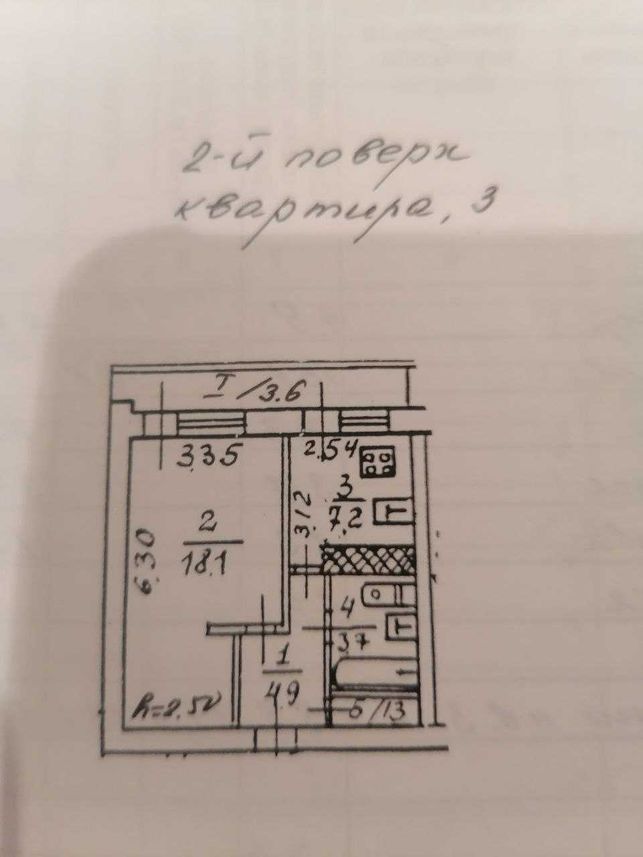 2-й поверх
квартира, 3
I/3.6
3.35
2.54
3
7,2
3,12
2
18.1
6.30
4
3,7
1
4.9
h=2.50
5/1.3